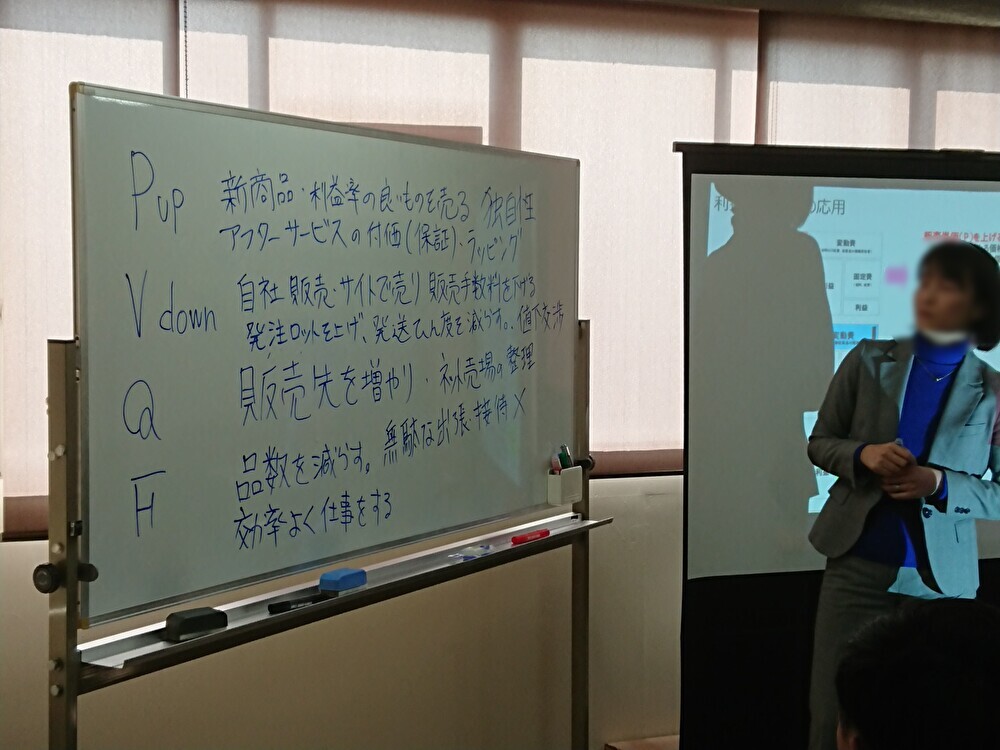 P up
新商品・利益率の良いものを売る 独自性
アフターサービスの付価(保証)・ラッピング
V down
自社販売・サイトで売り 販売手数料を下げる
発注ロットを上げ、発送ひん度を減らす。、値下交渉
Q
販売先を増やり・ネット売場の整理
F
品数を減らす。無駄な出張・接待×
効率よく仕事をする
の応用
変動費
固定費
利益
変動費
(P)を上げる